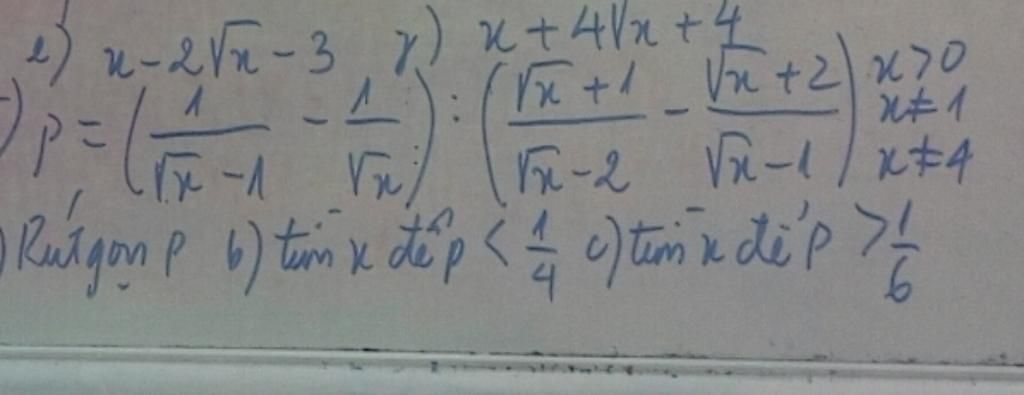 e) x - 2√x - 3 γ) x + 4√x + 4
) P = (1/(√x - 1) - 1/√x) : ((√x + 1)/(√x - 2) - (√x + 2)/(√x - 1)) x > 0 x ≠ 1 x ≠ 4
) Rút gọn P b) tìm x để P < 1/4 c) tìm x để P > 1/6